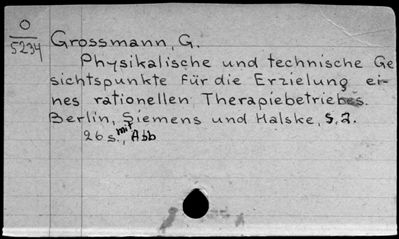 O
5234
Grossmann, G.
Physikalische und technische Ge
sichtspunkte für die Erzielung ei-
nes rationellen Therapiebetriebes.
Berlin, Siemens und Halske, S. 2.
26 s., mit Abb